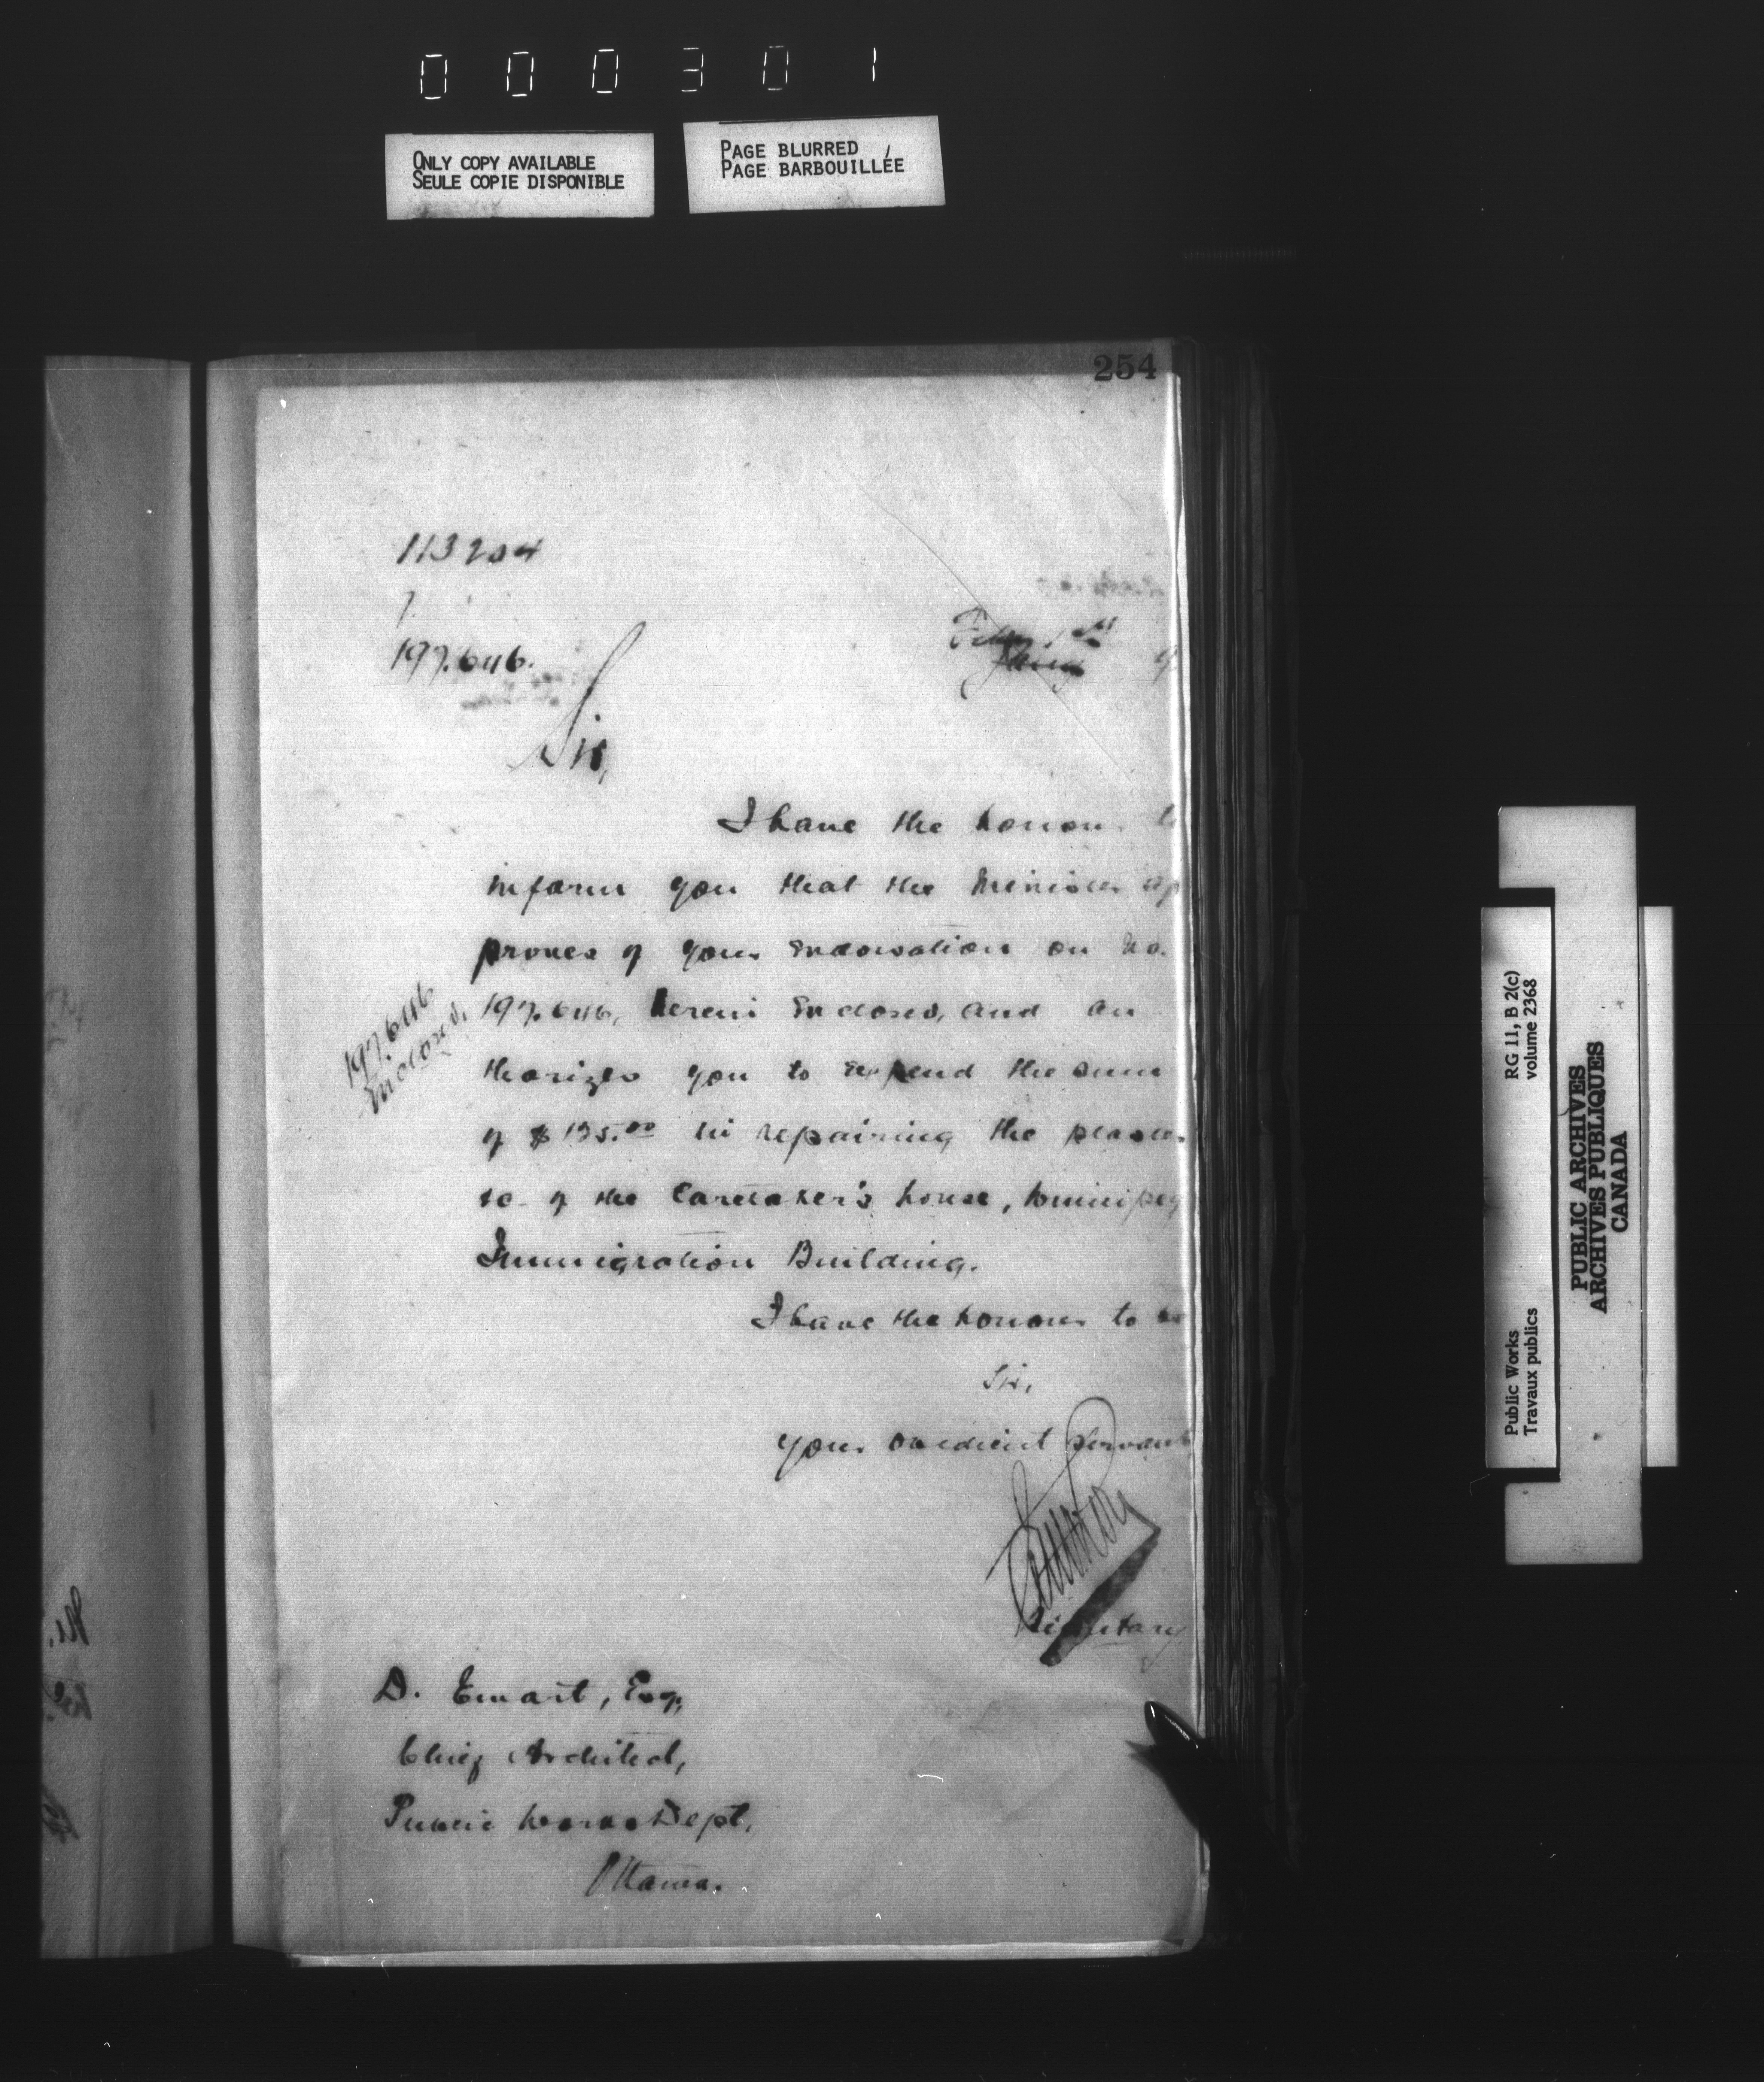 000301
ONLY COPY AVAILABLE
SEULE COPIE DISPONIBLE
PAGE BLURRED
PAGE BARBOUILLÉE
254
113204
1
197.646.
Feby 1st
9
Sir,
I have the honour to
inform you that the Minister ap
proves of your endorsation on No.
197.646, herein enclosed, and au
thorizes you to expend the sum
of $135.00 in repairing the plaster
&c of the Caretaker's house, Winnipeg
Immigration Building.
197.646
enclosed.
I have the honour to be
Sir,
Your obedient servant
Secretary
D. Ewart, Esq,
Chief Architect,
Public Works Dept.
Ottawa.
Public Works
Travaux publics
RG 11, B 2(c)
volume 2368
PUBLIC ARCHIVES
ARCHIVES PUBLIQUES
CANADA